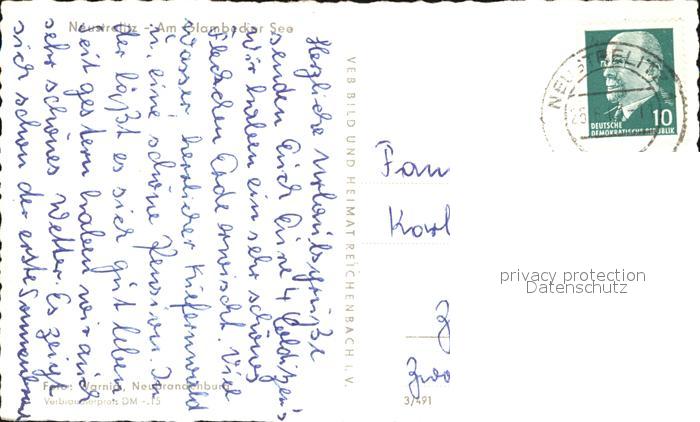 Neustrelitz - Am Glambecker See
Herzliche Urlaubsgrüße
senden Euch Eure 4
wir haben ein sehr schönes
Fleckchen Erde erwischt. Viel
Wasser, herrlicher Kiefernwald
u. eine schöne Pension. Da
läßt es sich gut leben.
Seit gestern haben wir auch
sehr schönes Wetter. Es zeigt
sich schon der erste Sonnenbrand
Foto: Warnig, Neubrandenburg
Verbraucherpreis DM -.15
VEB BILD UND HEIMAT REICHENBACH I. V.
3/491
Fam
Karl
Z
Zwo
NEUSTRELITZ
10
DEUTSCHE
DEMOKRATISCHE REPUBLIK
privacy protection
Datenschutz